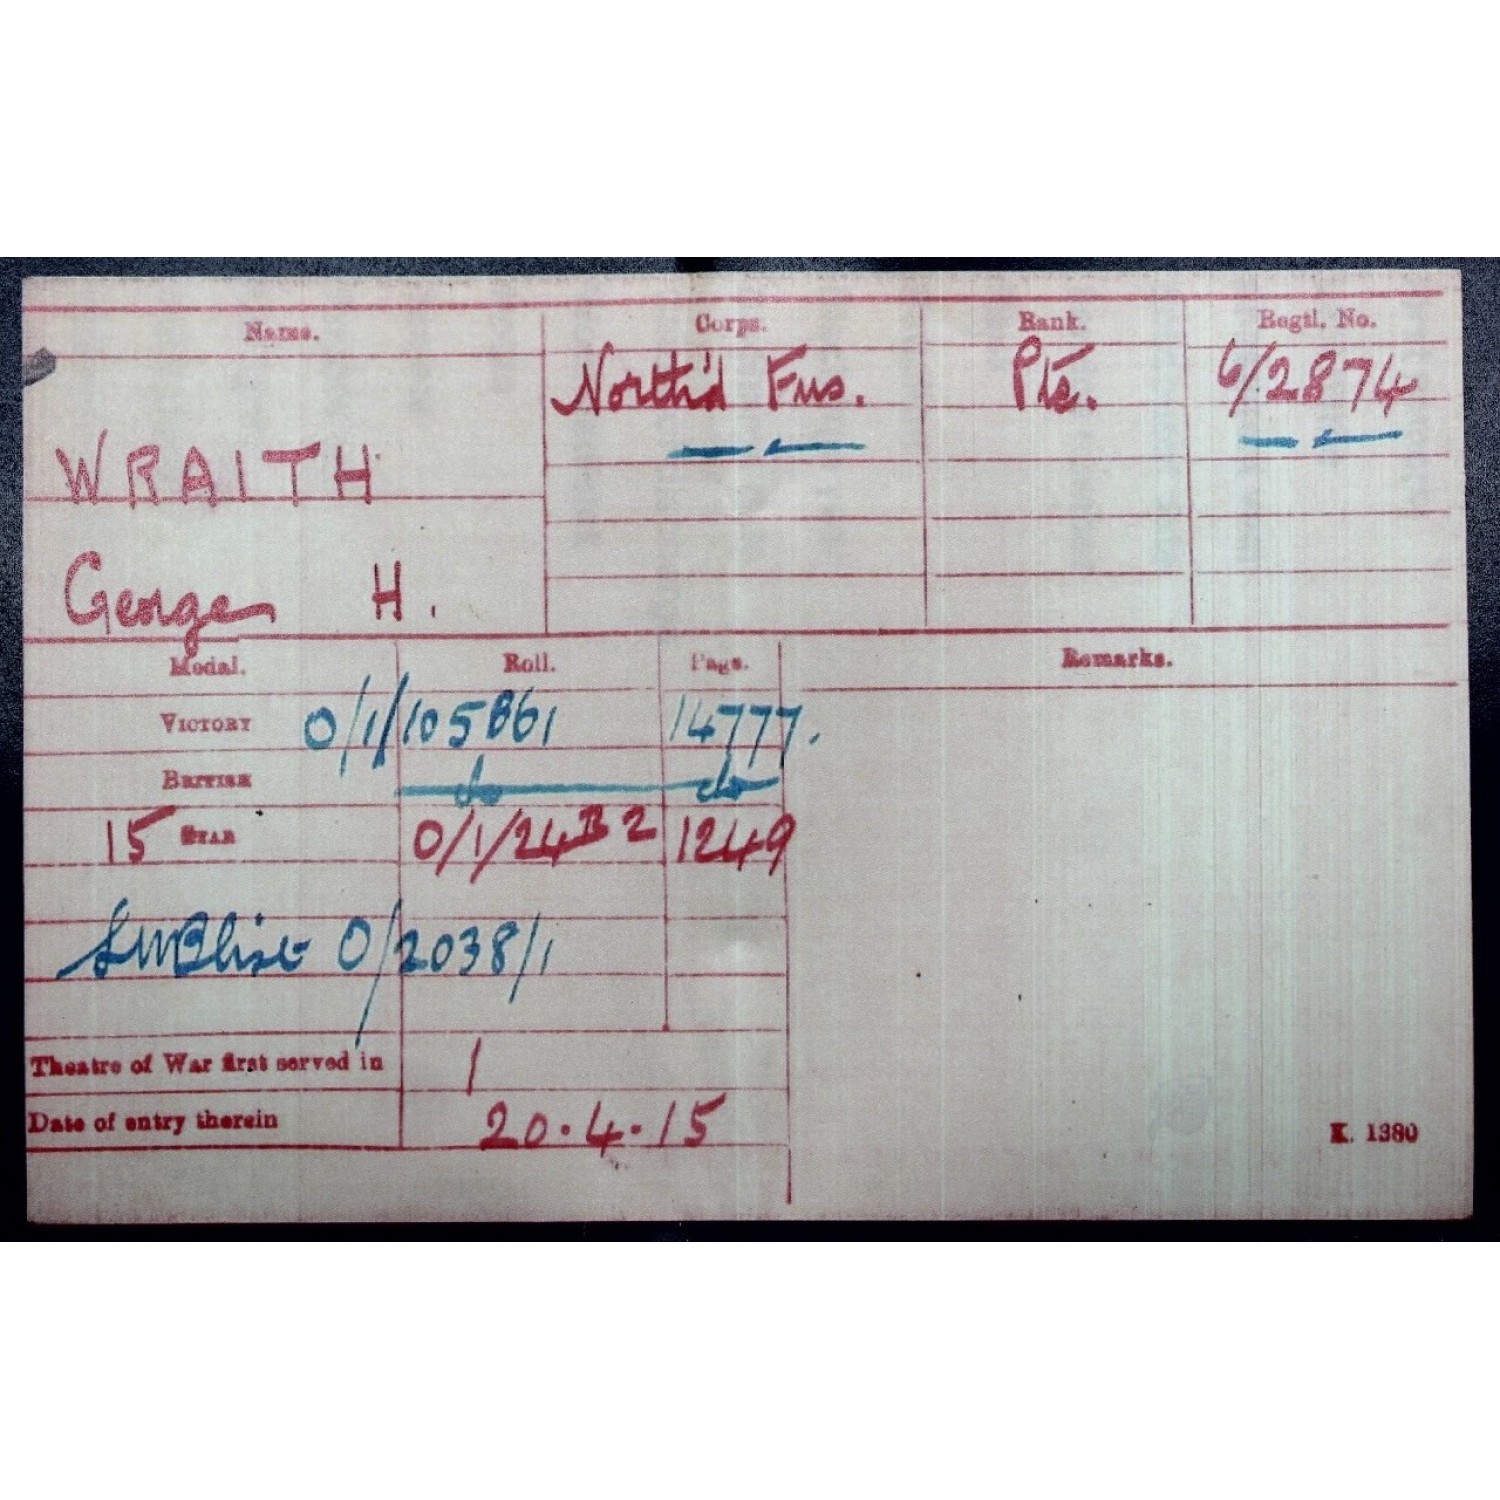 Name. Corps. Rank. Regtl. No.
North'd Fus. Pte. 6/2874
WRAITH
George H.
Medal. Roll. Page. Remarks.
VICTORY 0/1/105B61 14777.
BRITISH do do
15 STAR 0/1/24B2 1249
SWB list 0/2038/1
Theatre of War first served in 1
Date of entry therein 20.4.15
K. 1380